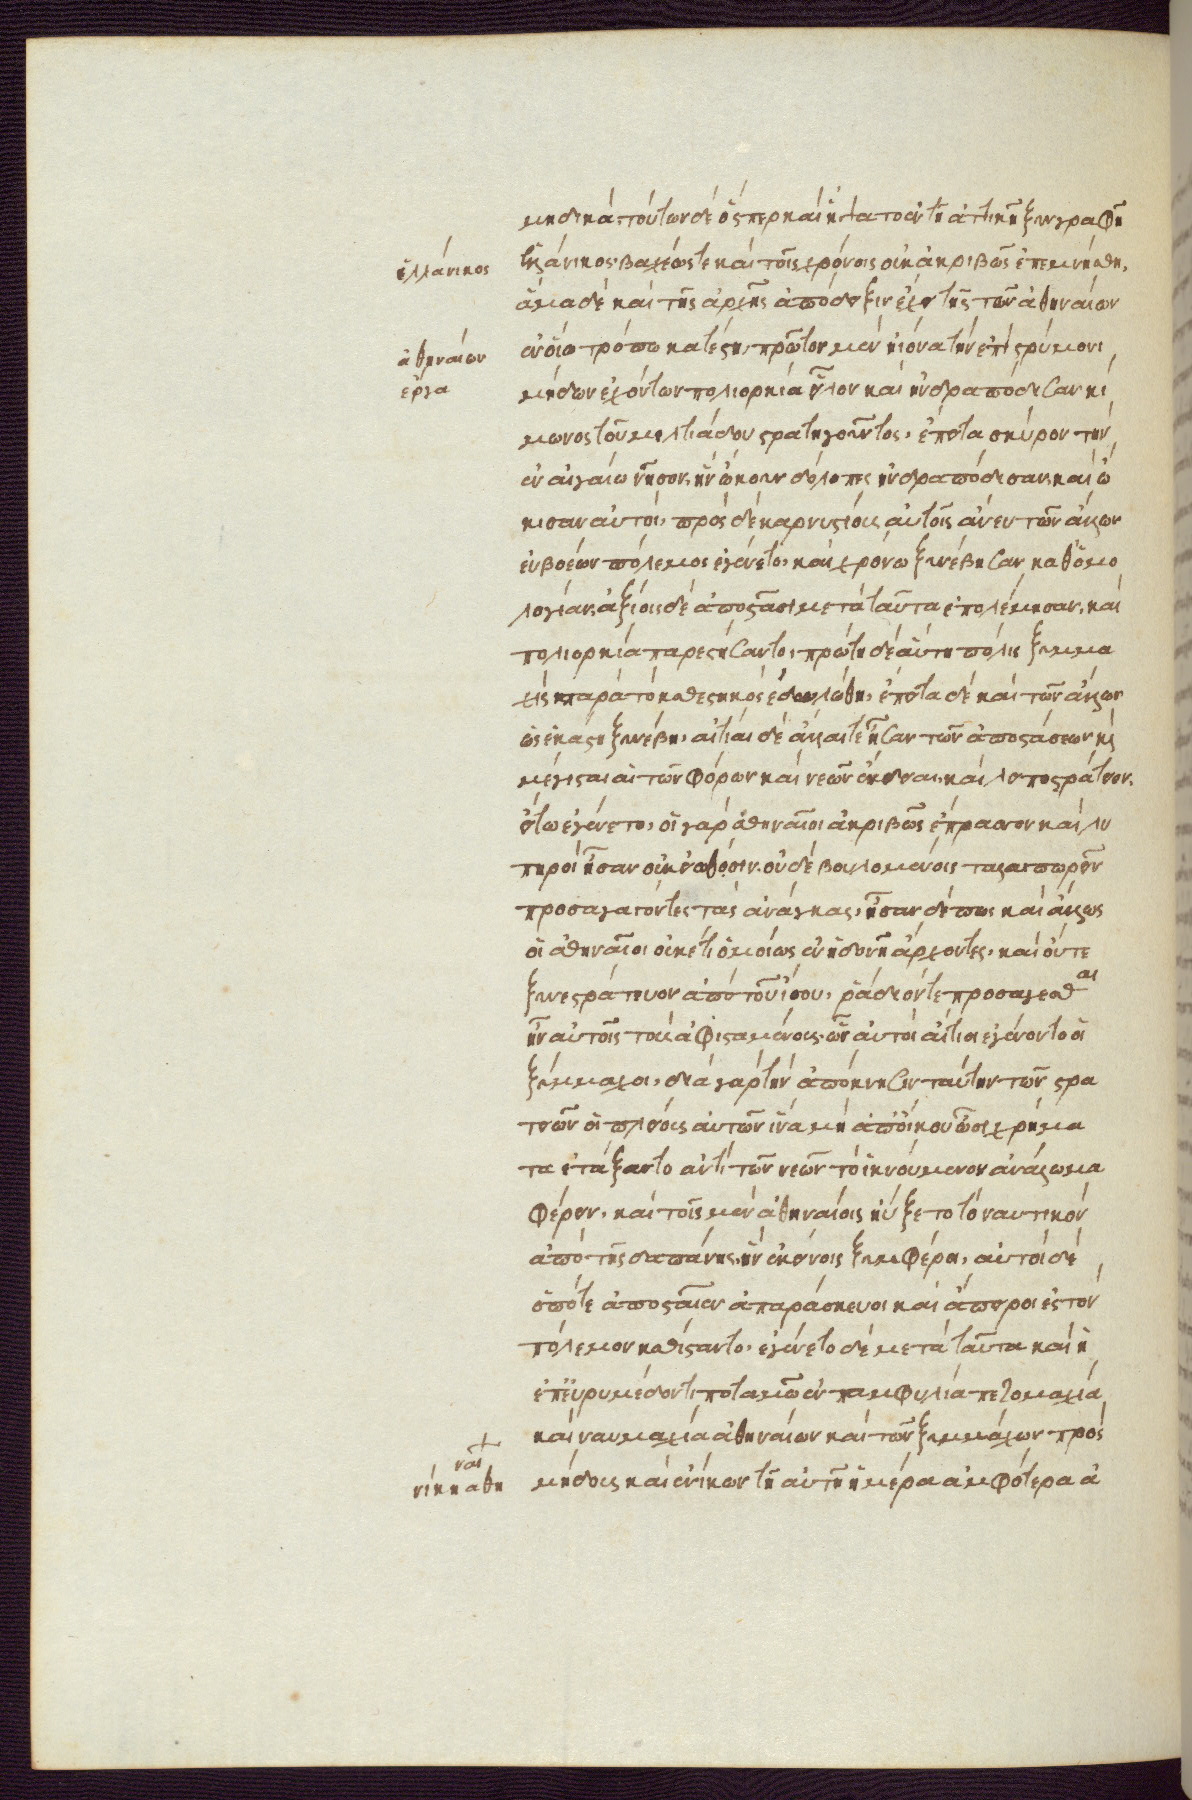 μηδικά· τούτων δὲ ὅσπερ καὶ ἥψατο ἐν τῆ ἀττικῆ ξυγγραφῆ
ἑλλάνικος
ἑλλάνικος· βραχέως τε καὶ τοῖς χρόνοις οὐκ ἀκριβῶς ἐπεμνήσθη,
ἅμα δὲ καὶ τῆς ἀρχῆς ἀπόδειξιν ἔχει τῆς τῶν ἀθηναίων
ἀθηναίων
ἔργα
ἐν οἵω τρόπω κατέστη, πρῶτον μὲν ἠιόνα τὴν ἐπὶ στρύμονι
μήδων ἐχόντων πολιορκία εἷλον καὶ ἠνδραπόδισαν κί
μωνος τοῦ μιλτιάδου στρατηγοῦντος, ἔπειτα σκύρον τὴν
ἐν αἰγαίω νῆσον, ἣν ᾤκουν δόλοπες ἠνδραπόδισαν, καὶ ᾤ
κισαν αὐτοί, πρὸς δὲ καρυστίους αὐτοῖς ἄνευ τῶν ἄλλων
εὐβοέων πόλεμος ἐγένετο, καὶ χρόνω ξυνέβησαν καθ' ὁμο
λογίαν, ναξίοις δὲ ἀποστᾶσι μετὰ ταῦτα ἐπολέμησαν, καὶ
πολιορκία παρεστήσαντο, πρώτη δὲ αὕτη πόλις ξυμμα
χὶς παρὰ τὸ καθεστηκὸς ἐδουλώθη, ἔπειτα δὲ καὶ τῶν ἄλλων
ὡς ἑκάστη ξυνέβη, αἰτίαι δὲ ἄλλαι τε ἦσαν τῶν ἀποστάσεων κ
μέγισται αἱ τῶν φόρων καὶ νεῶν ἔκδειαι, καὶ λειποστράτιον,
εἴ τω ἐγένετο, οἱ γὰρ ἀθηναῖοι ἀκριβῶς ἔπρασσον καὶ λυ
πηροὶ ἦσαν οὐκ εἰωθόσιν, οὐδὲ βουλομένοις ταλαιπωρεῖν
προσάγοντες τὰς ἀνάγκας, ἦσαν δέ πως καὶ ἄλλως
οἱ ἀθηναῖοι οὐκέτι ὁμοίως ἐν ἡδονῆ ἄρχοντες, καὶ οὔτε
ξυνεστράτευον ἀπὸ τοῦ ἴσου, ῥάδιόν τε προσάγεσθαι
ἦν αὐτοῖς τοὺς ἀφισταμένους, ὧν αὐτοὶ αἴτιοι ἐγένοντο οἱ
ξύμμαχοι, διὰ γὰρ τὴν ἀπόκνησιν ταύτην τῶν στρα
τειῶν οἱ πλείους αὐτῶν ἵνα μὴ ἀπ' οἴκου ὦσι χρήμα
τα ἐτάξαντο ἀντὶ τῶν νεῶν τὸ ἱκνούμενον ἀνάλωμα
φέρειν, καὶ τοῖς μὲν ἀθηναίοις ηὔξετο τὸ ναυτικὸν
ἀπὸ τῆς δαπάνης, ἣν ἐκεῖνοις ξυμφέροι, αὐτοὶ δὲ
ὁπότε ἀποσταῖεν ἀπαράσκευοι καὶ ἄπειροι ἐς τὸν
πόλεμον καθίσταντο, ἐγένετο δὲ μετὰ ταῦτα καὶ ἡ
ἐπ' εὐρυμέδοντι ποταμῶ ἐν παμφυλία πεζομαχία
καὶ ναυμαχία ἀθηναίων καὶ τῶν ξυμμάχων πρὸς
νίκη ἀθηναί
μήδους καὶ ἐνίκων τῆ αὐτῆ ἡμέρα ἀμφότερα ἀ